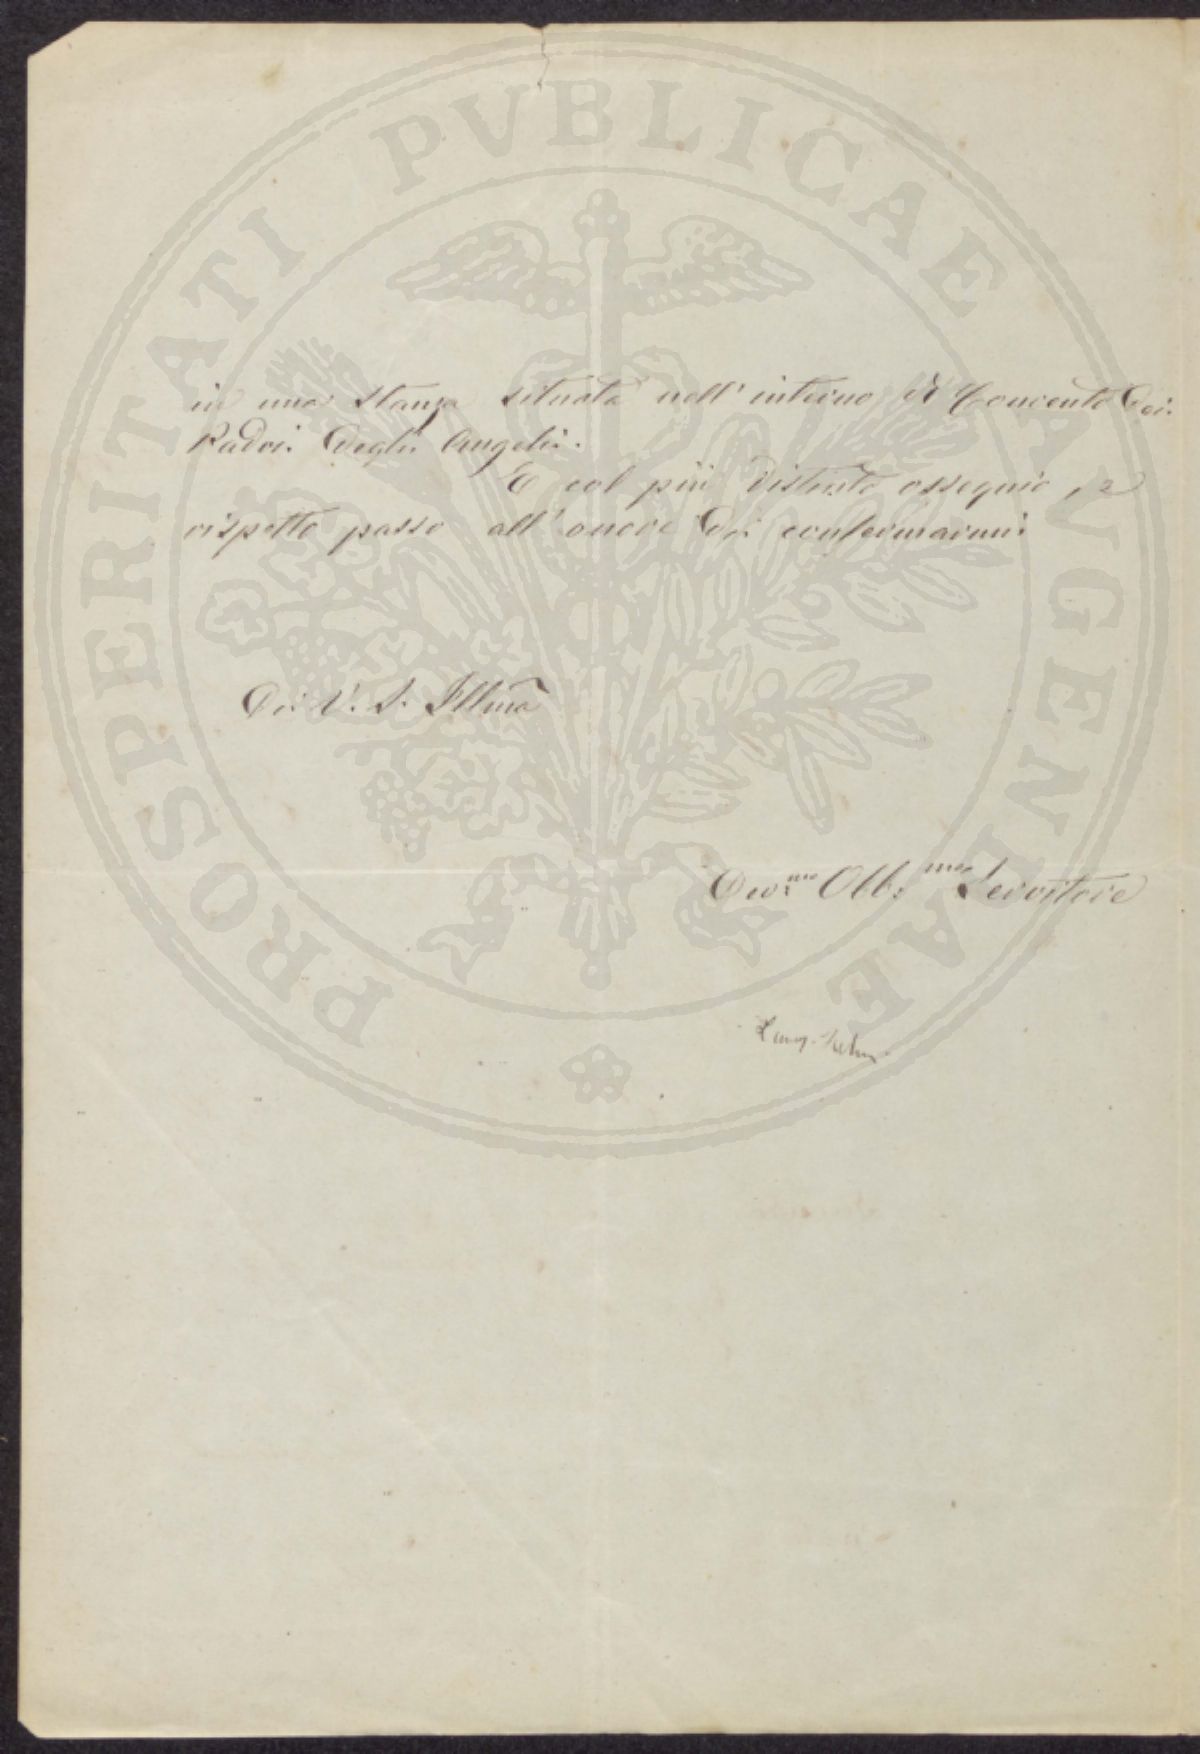 in una stanza situata nell' interno di Convento dei
Padri degli Angeli.
E col più distinto ossequio, e
rispetto passo all' onore di confermarmi
Di V. S. Illma
Devmo Obbmo Servitore
PROSPERITATI PVBLICAE AVGENDAE